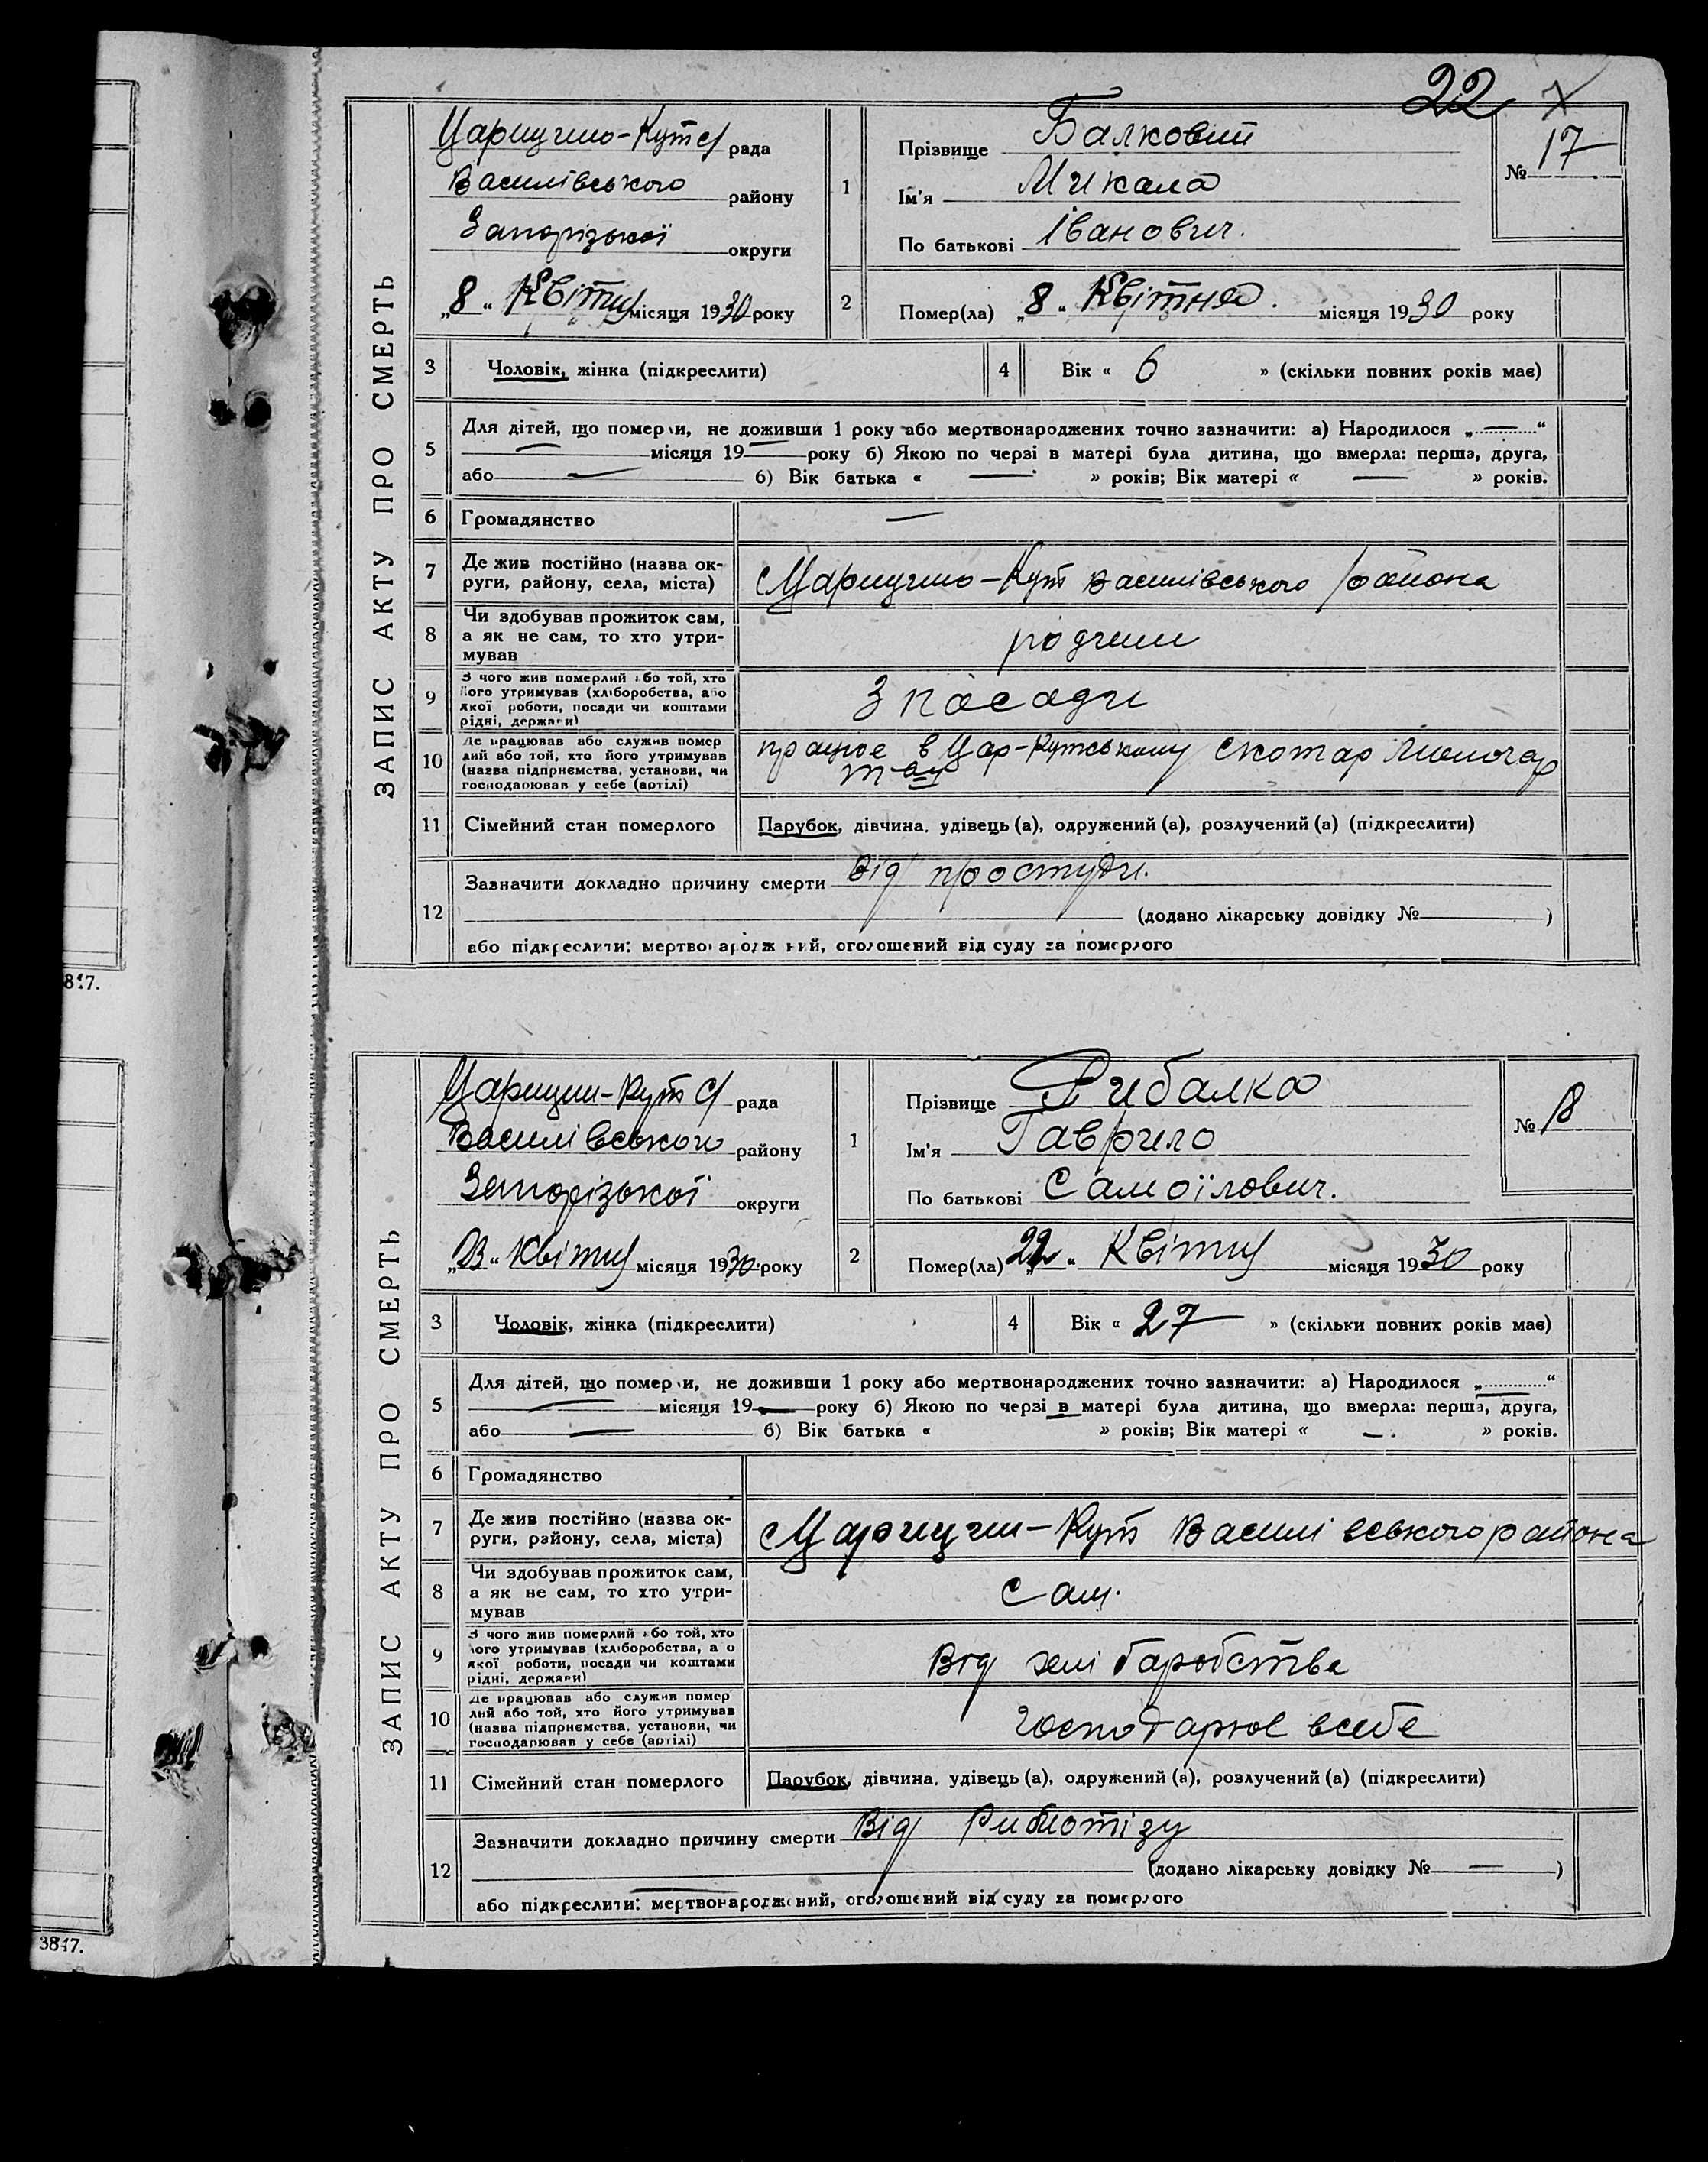 22
ЗАПИС АКТУ ПРО СМЕРТЬ
Царицино-Кутс рада
Василівського району
Запорізької округи
„8“ Квітня місяця 1930 року
1 Прізвище Балковий
Ім'я Микала
По батькові Іванович.
№ 17
2 Помер(ла) „8“ Квітня. місяця 1930 року
3 Чоловік, жінка (підкреслити)
4 Вік « 6 » (скільки повних років має)
5 Для дітей, що померли, не доживши 1 року або мертвонароджених точно зазначити: а) Народилося „—“
— місяця 19— року б) Якою по черзі в матері була дитина, що вмерла: перша, друга,
або — б) Вік батька « — » років; Вік матері « — » років.
6 Громадянство —
7 Де жив постійно (назва ок-
руги, району, села, міста) Царицино-Кут Василівського района
8 Чи здобував прожиток сам,
а як не сам, то хто утри-
мував родичи
9 З чого жив померлий або той, хто
його утримував (хліборобства, або
якої роботи, посади чи коштами
рідні, держави) З пасади
10 Де працював або служив помер
лий або той, хто його утримував
(назва підприємства, установи, чи
господарював у себе (артілі) працює в Цар-Кутському скотар
11 Сімейний стан померлого Парубок, дівчина, удівець (а), одружений (а), розлучений (а) (підкреслити)
12 Зазначити докладно причину смерти Від простуди.
(додано лікарську довідку № )
або підкреслити: мертвонароджений, оголошений від суду за померлого
817.
ЗАПИС АКТУ ПРО СМЕРТЬ
Царицин-Кут С рада
Василівського району
Запорізької округи
Квітня місяця 1930 року
1 Прізвище Рибалка
Ім'я Гаврило
По батькові Самоїлович.
№ 18
2 Помер(ла) „22“ Квітня місяця 1930 року
3 Чоловік, жінка (підкреслити)
4 Вік « 27 » (скільки повних років має)
5 Для дітей, що померли, не доживши 1 року або мертвонароджених точно зазначити: а) Народилося „—“
— місяця 19— року б) Якою по черзі в матері була дитина, що вмерла: перша, друга,
або — б) Вік батька « » років; Вік матері « — » років.
6 Громадянство
7 Де жив постійно (назва ок-
руги, району, села, міста) Царицин-Кут Василівського района
8 Чи здобував прожиток сам,
а як не сам, то хто утри-
мував Сам.
9 З чого жив померлий або той, хто
його утримував (хліборобства, або
якої роботи, посади чи коштами
рідні, держави) Від хліборобства
10 Де працював або служив помер
лий або той, хто його утримував
(назва підприємства, установи, чи
господарював у себе (артілі) господарює всебе
11 Сімейний стан померлого Парубок, дівчина, удівець (а), одружений (а), розлучений (а) (підкреслити)
12 Зазначити докладно причину смерти Від
(додано лікарську довідку № — )
або підкреслити: мертвонароджений, оголошений від суду за померлого
3817.